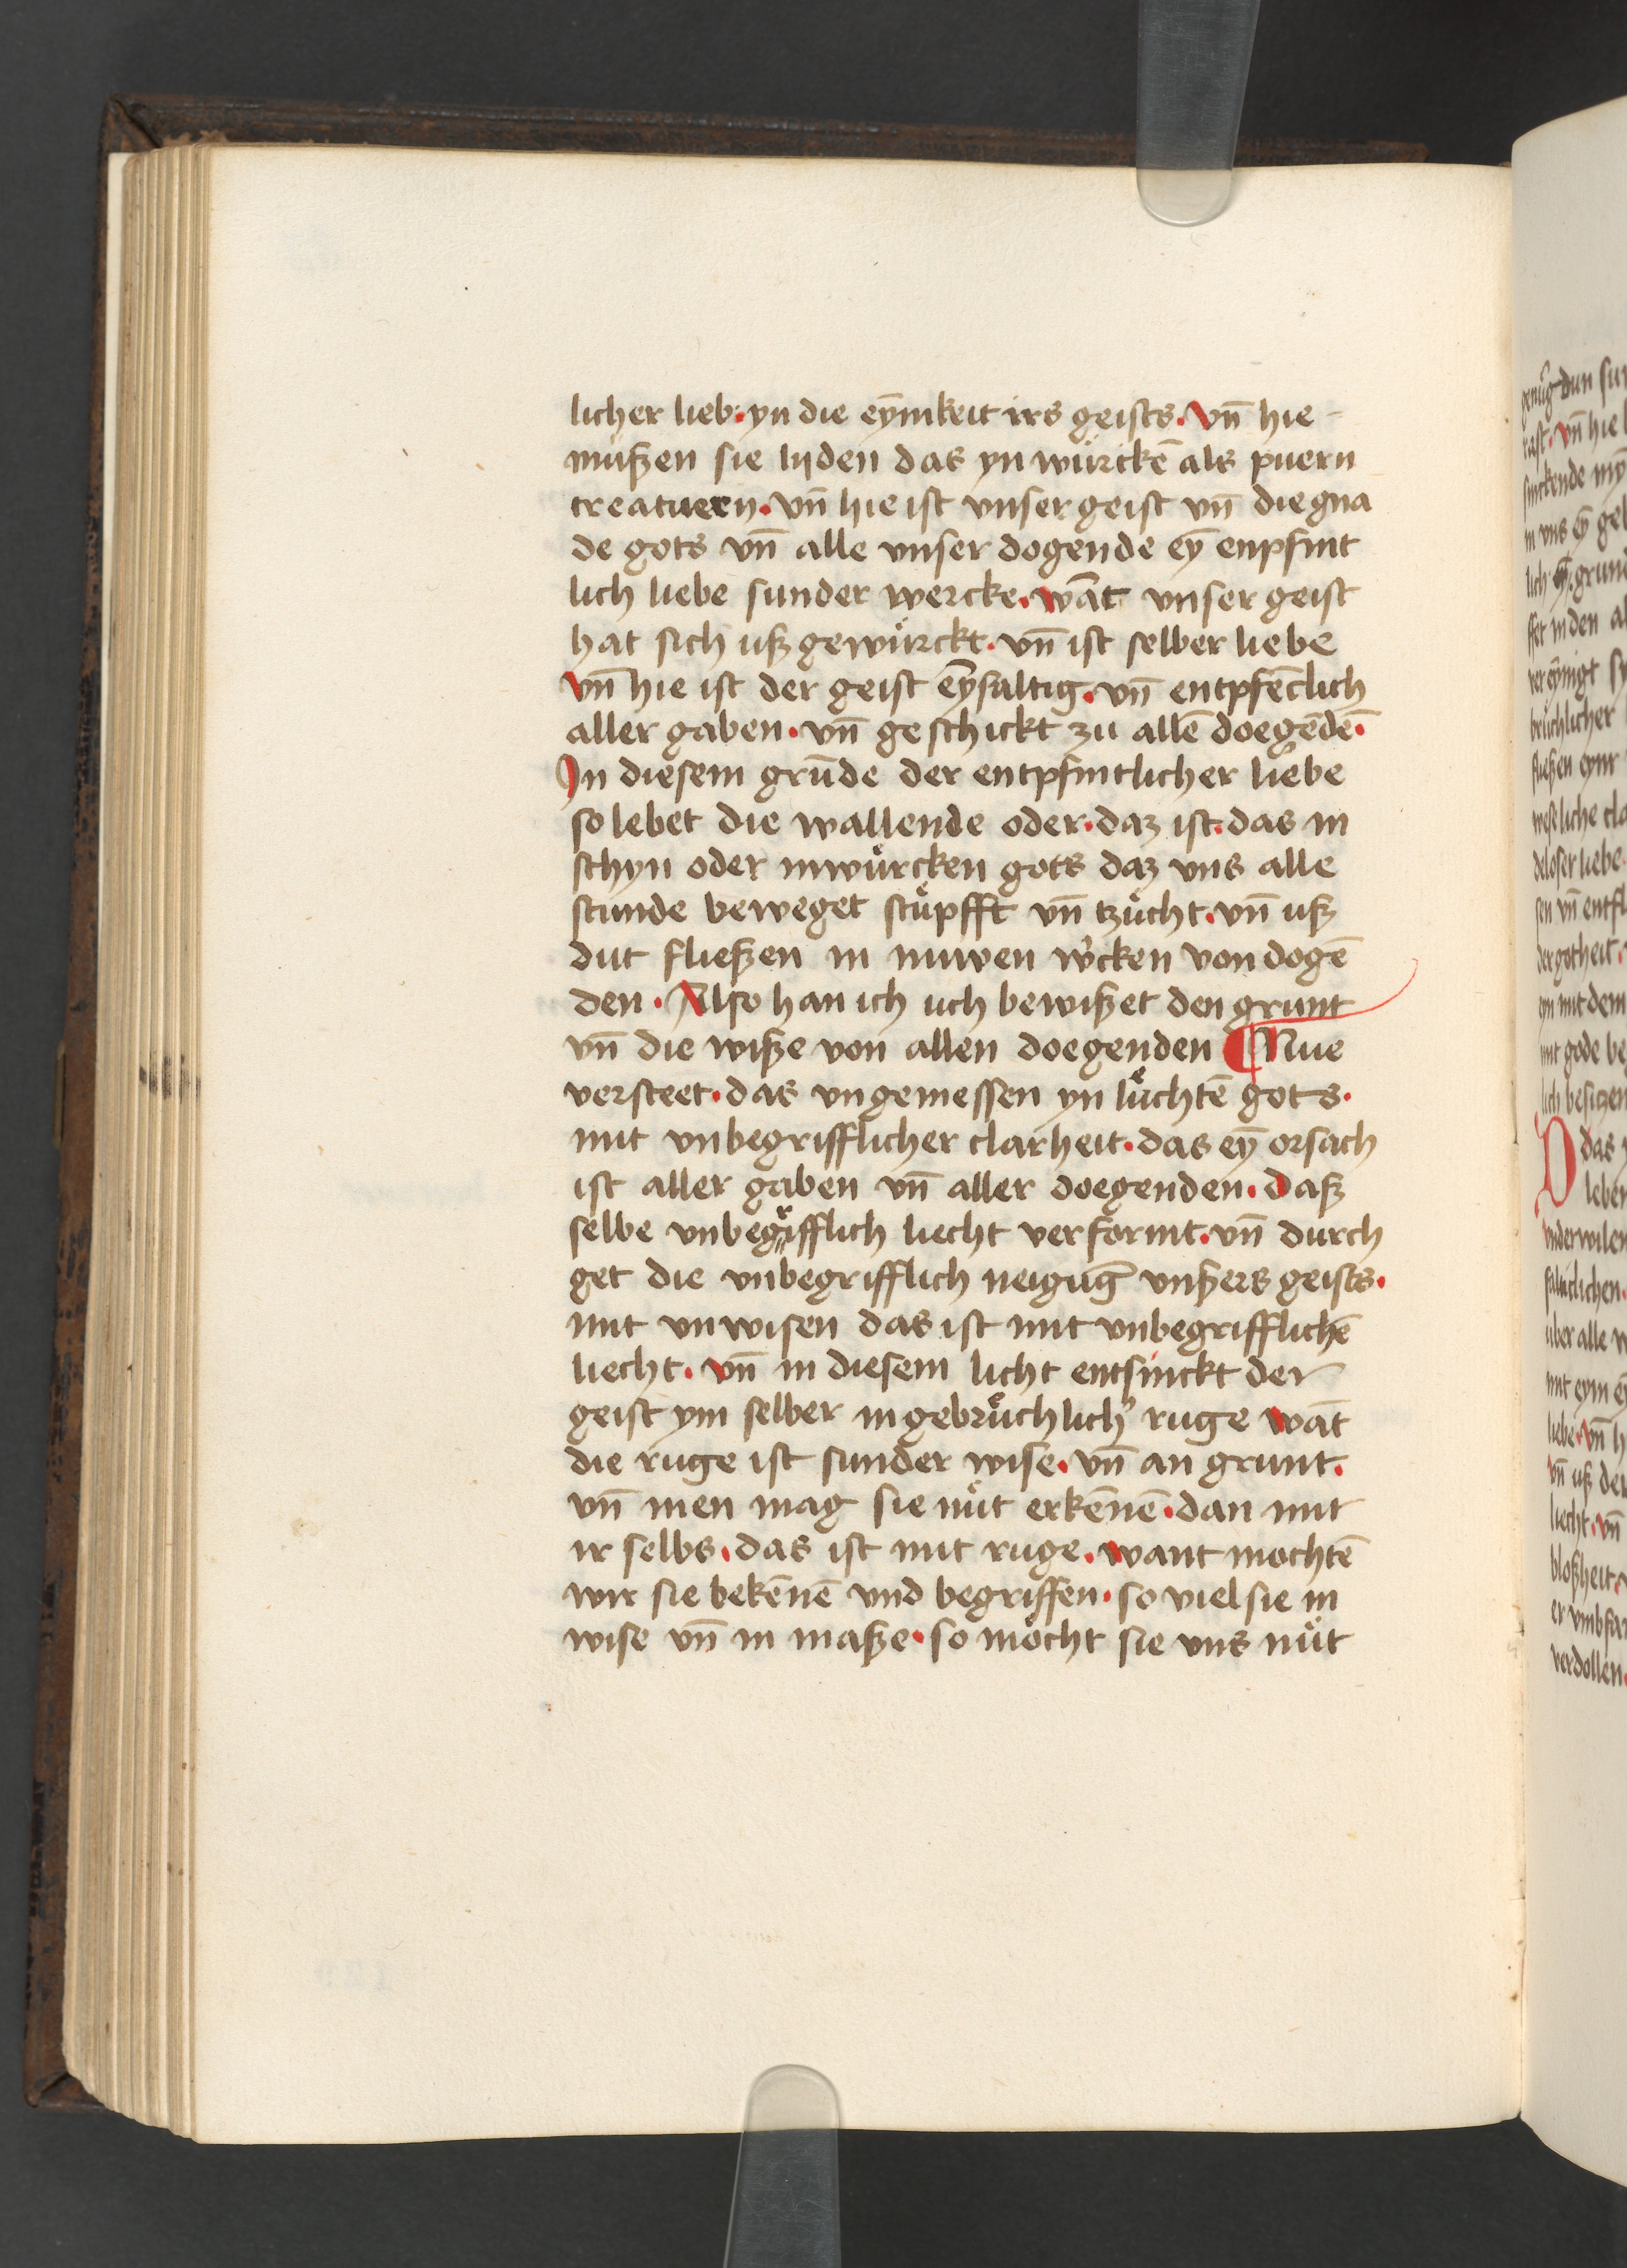 licher lieb · yn die eȳmkeit irs geists · vn̄ hie -
mußen sie lijden das yn wuͤrckē als puern
creatuern · vn̄ hie ist vnser geist vn̄ die gna
de gots vn̄ alle vnser dogende eȳ enpfint
lich liebe sunder wercke · wāt vnser geist
hat sich uß gewuͤrckt · vn̄ ist selber liebe
vn̄ hie ist der geist eȳfaltig · vn̄ entpfēclich
aller gaben · vn̄ geschickt zu allē doegēdē ·
In diesem grūde der entpfintlicher liebe
so lebet die wallende oder · daz ist · das in
schyn oder inwuͤrcken gots daz vns alle
stunde beweget stuͤpfft vn̄ tzuͤcht · vn̄ uß
dut fließen in nuwen w'cken von dogē
den · Also han ich uch bewißet den grunt
vn̄ die wiße von allen doegenden ¶ Nue
versteet · das vngemessen yn luͤchtē gots ·
mit vnbegrifflicher clarheit · das eȳ orsach
ist aller gaben vn̄ aller doegenden · Daß
selbe vnbegifflich liecht verformt · vn̄ durch
get die vnbegrifflich neigūg vnßers geists ·
mit vnwisen das ist mit vnbegrifflichē
liecht · vn̄ in diesem licht entsinckt der
geist ym selber in gebruͤchlich' ruge wāt
die ruge ist sunder wise · vn̄ an grunt ·
vn̄ men mag sie nuͤt erkēnē · dan mit
ir selbs · das ist mit ruge · want mochtē
wir sie bekēnē vnd begriffen · so viel sie in
wise vn̄ in maße · so moͤcht sie vns nuͤt